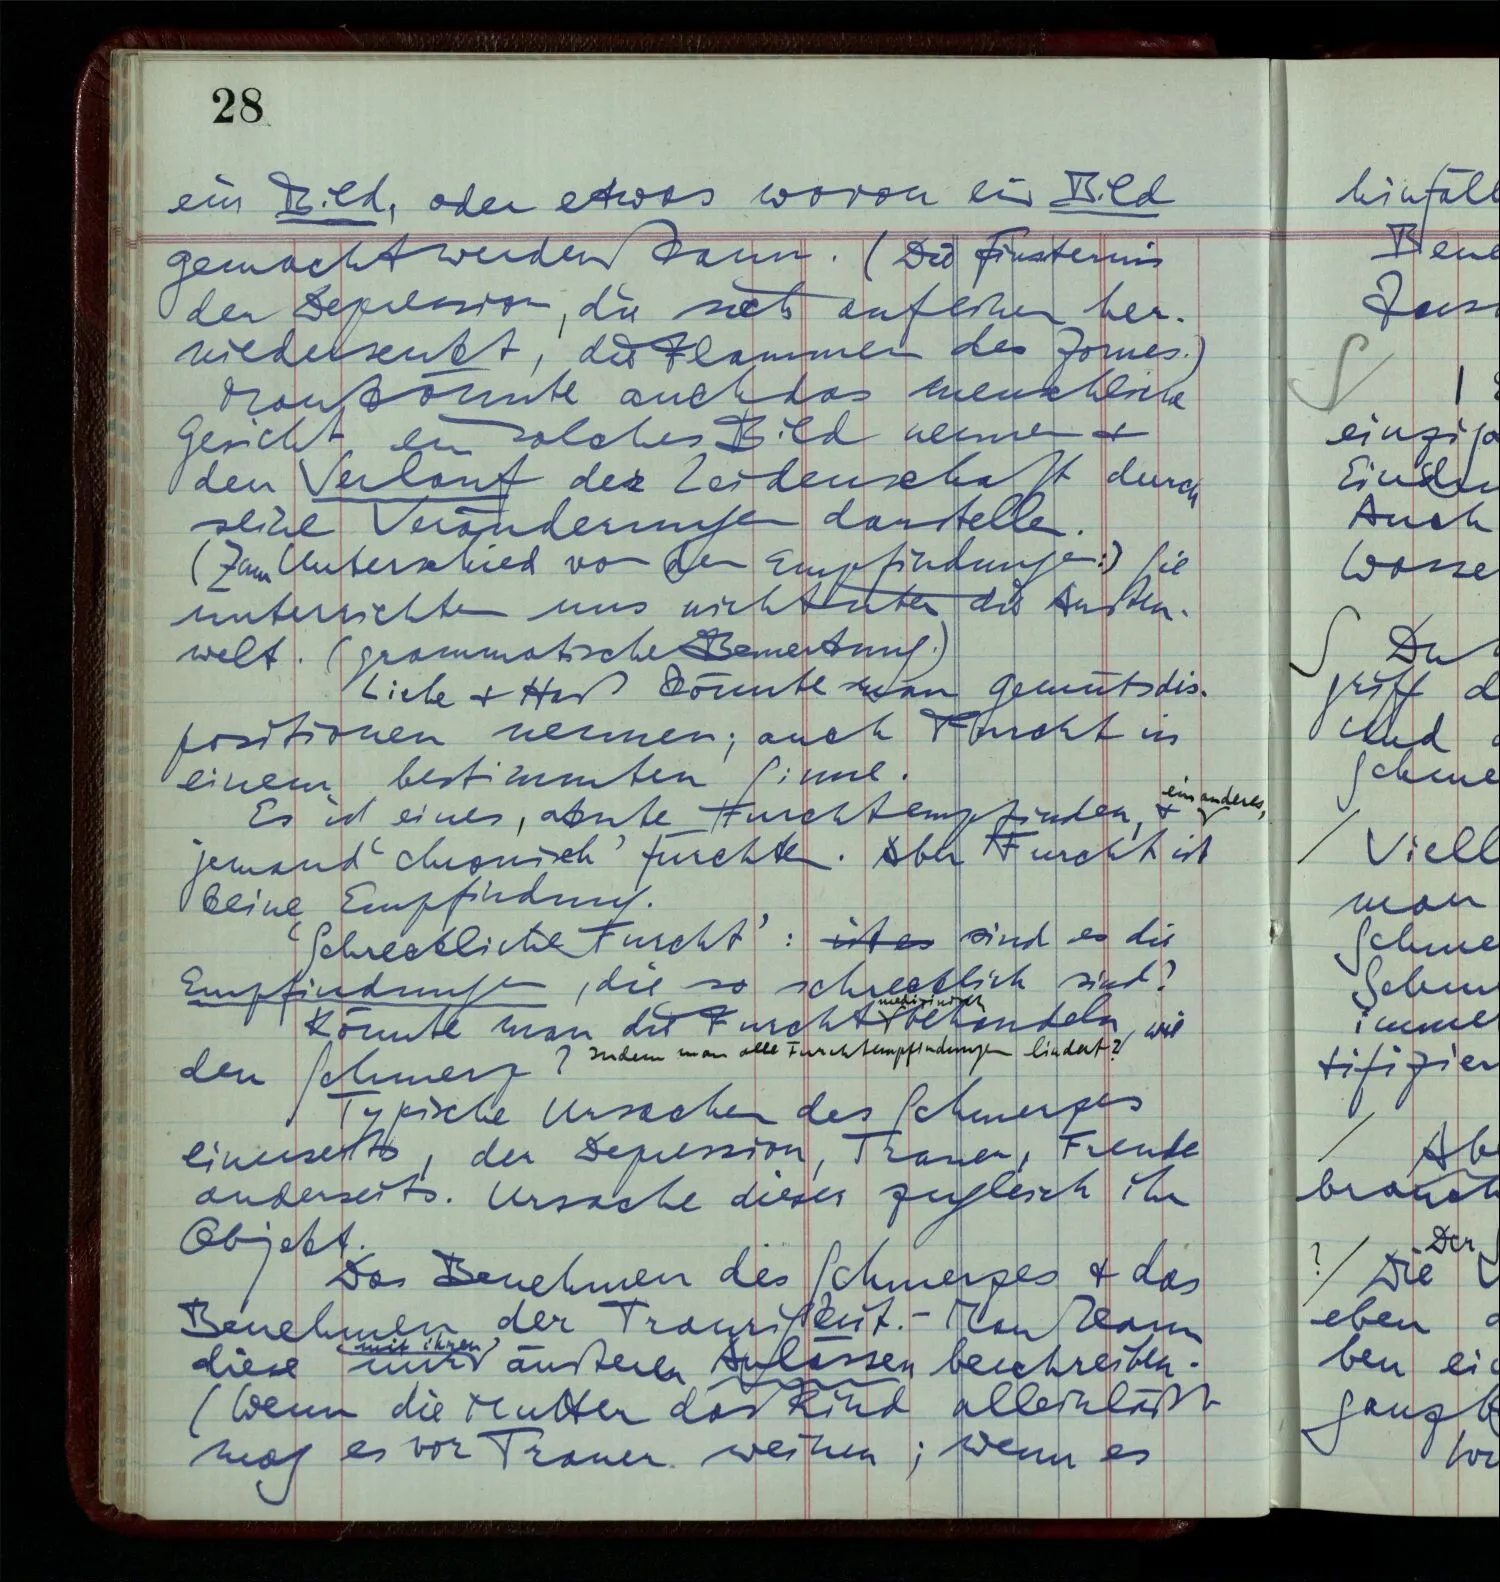 28
ein Bild, oder etwas wovon ein Bild
gemacht werden kann. (Die Finsternis
der Depression, die sich auf einen her-
niedersenkt, die Flammen des Zornes.)
Man könnte auch das menschliche
Gesicht ein solches Bild nennen &
den Verlauf der Leidenschaft durch
seine Veränderungen darstellen.
(Zum Unterschied von den Empfindungen:) Sie
unterrichten uns nicht über die Außen-
welt. (grammatische Bemerkung.)
Liebe & Haß könnte man Gemütsdis-
positionen nennen; auch Furcht in
einem bestimmten Sinne.
ein anderes,
Es ist eines, akute Furcht empfinden, &
jemand 'chronisch' fürchten. Aber Furcht ist
keine Empfindung.
'Schreckliche Furcht': ist es sind es die
Empfindungen, die so schrecklich sind?
medizinisch
Könnte man die Furcht behandeln, wie
den Schmerz? Indem man alle Furchtempfindungen lindert?
Typische Ursachen des Schmerzes
einerseits, der Depression, Trauer, Freude
anderseits. Ursache dieser zugleich ihr
Objekt.
Das Benehmen des Schmerzes & das
Benehmen der Traurigkeit. – Man kann
mit ihren
diese nur äußeren Anlässen beschreiben.
(Wenn die Mutter das Kind allein läßt
mag es vor Trauer weinen; wenn es
hinfäll
einzig
Auch
Wasse
und
Schme
Viell
man
Schme
immer
tifizier
Abe
brauch
Der
? / Die
eben
ben
ganz